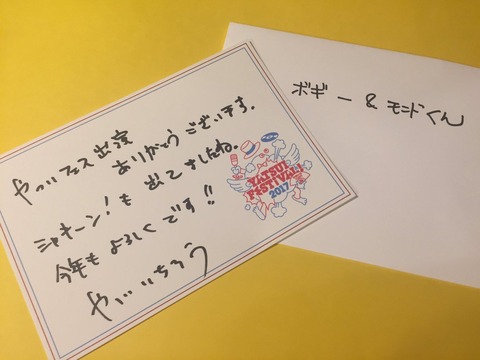 やついフェス出演
ありがとうございます。
シャキーン!も出てましたね。
今年もよろしくです!!
やついいちろう
YATSUI
FESTIVAL!
2017
ボギー & モンドくん